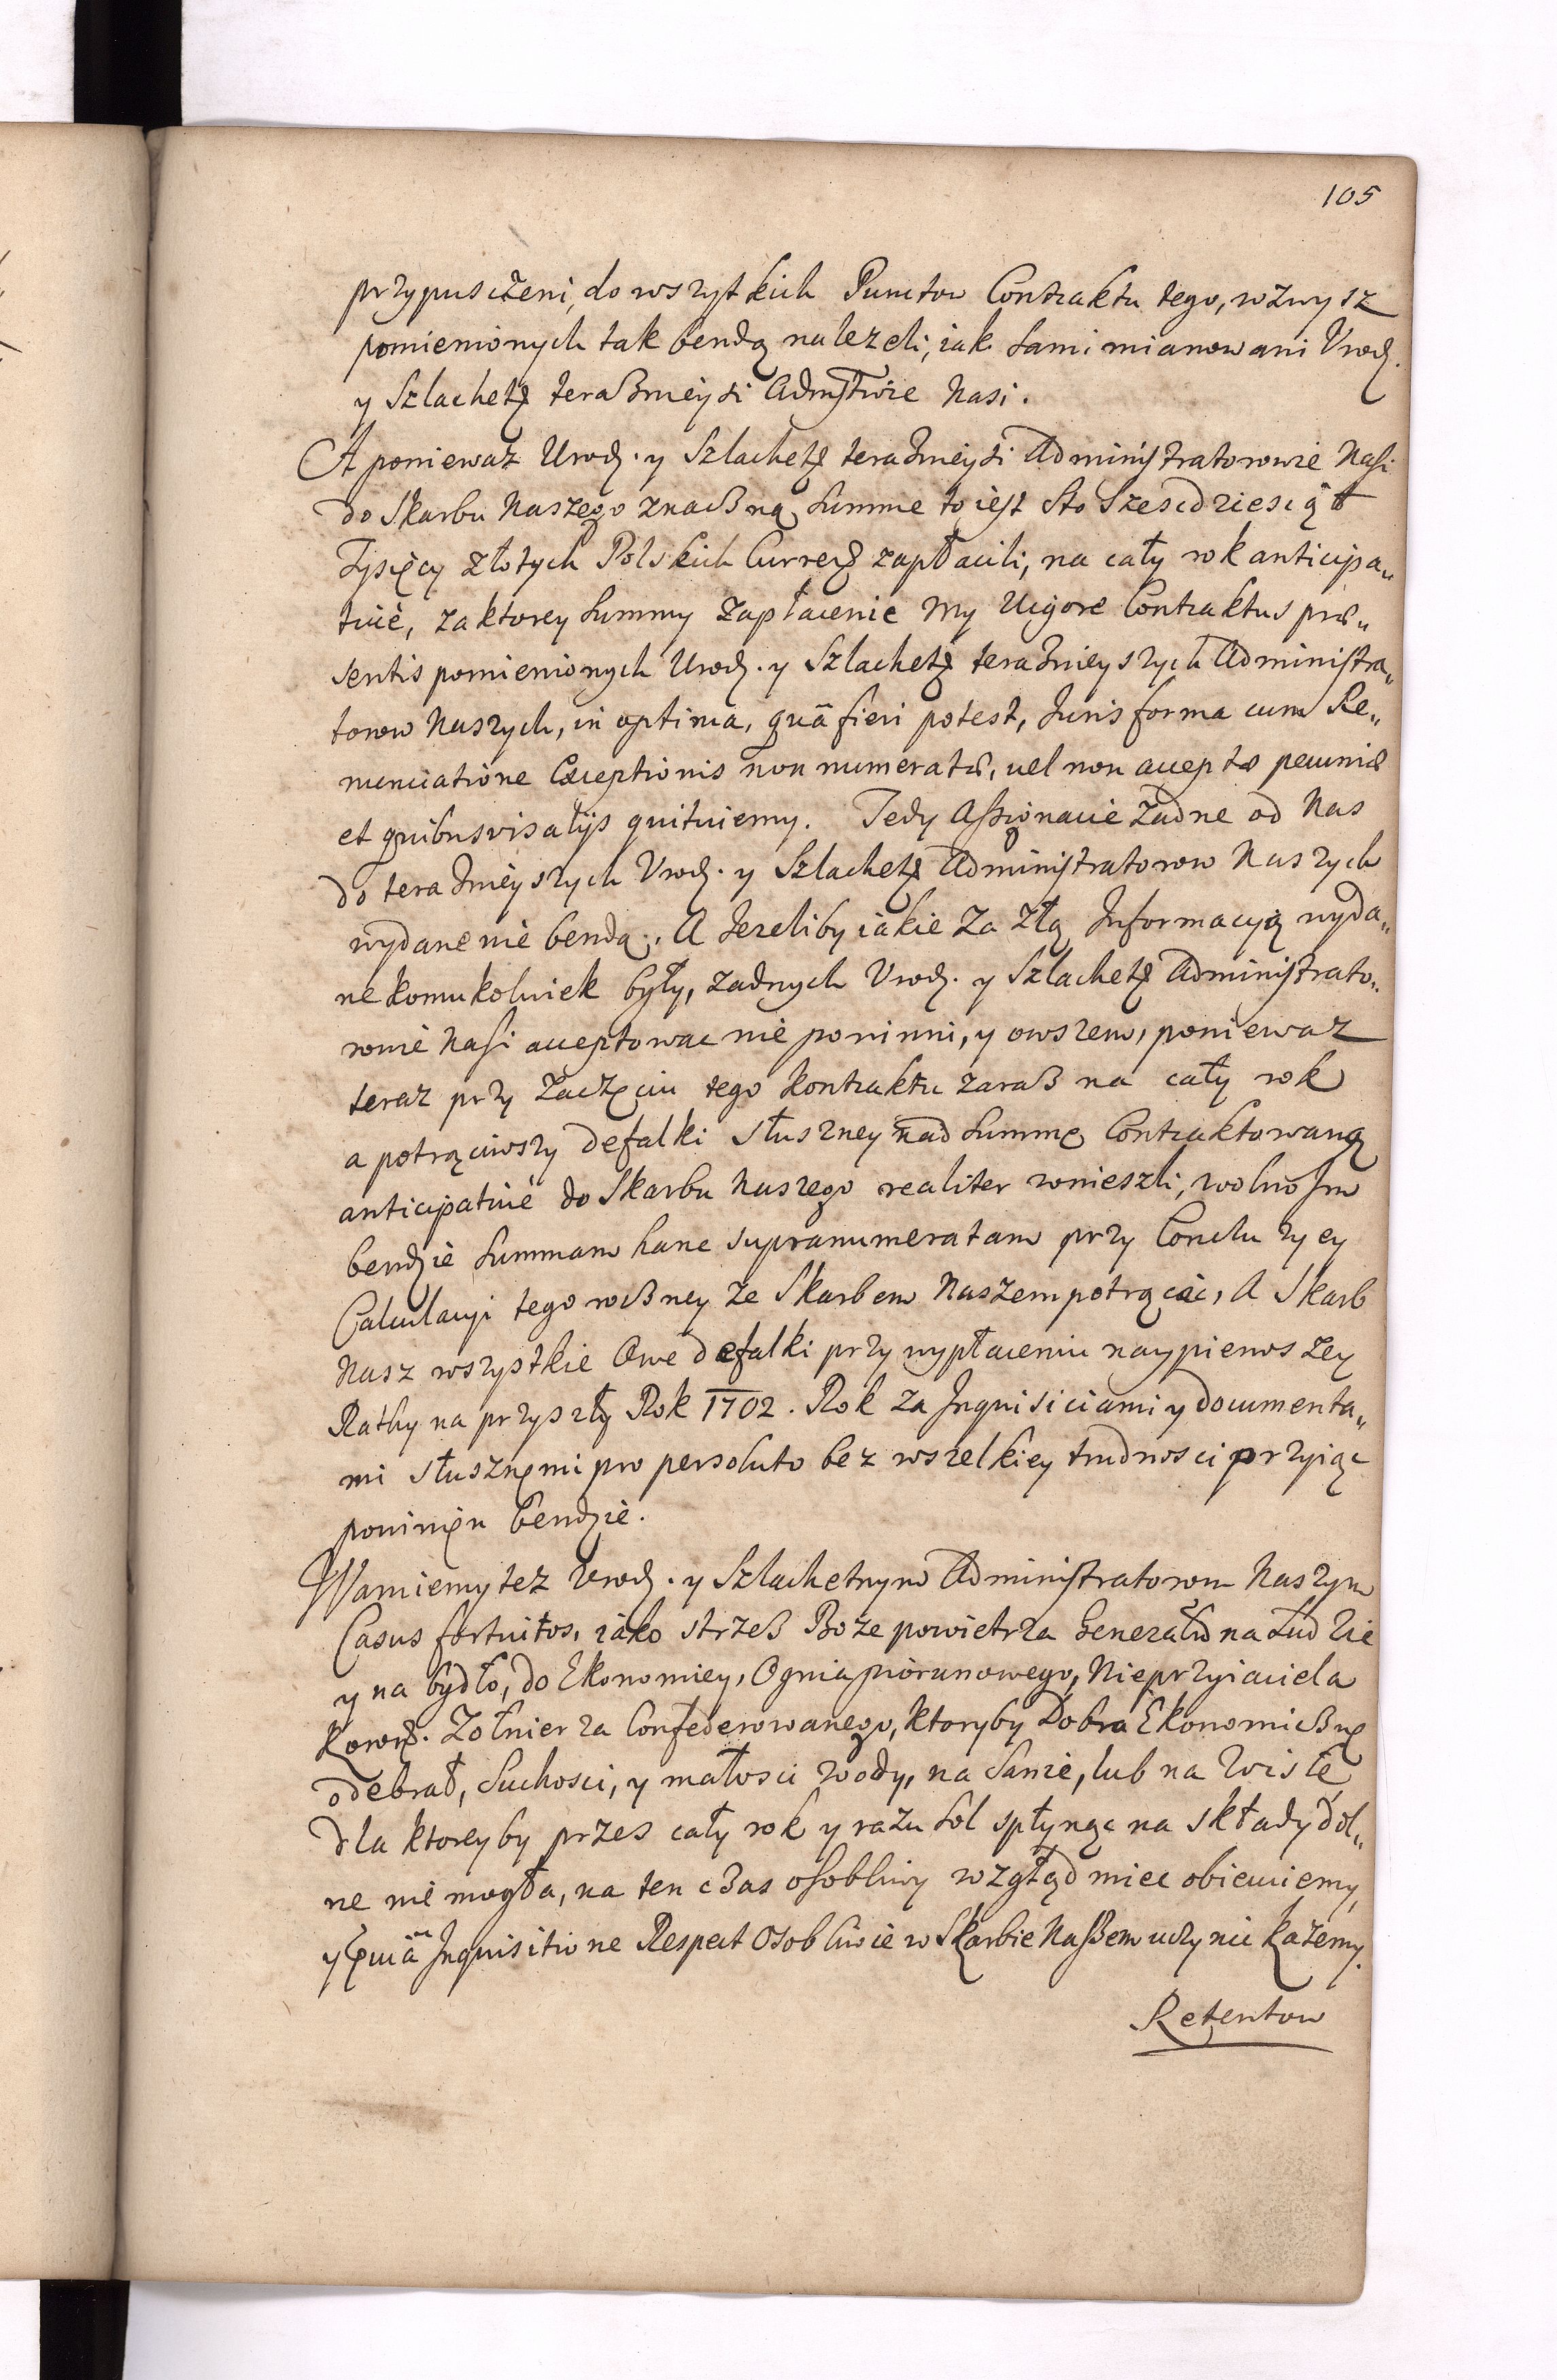 105
przypusczeni, do wszytkich Punctow Contraktu tego, wzwysz
pomienionych tak bendą nalezeli, iak sami mianowani Urod.
y Szlachet. teraßnieysi Admstwie Nasi.
A poniewaz Urod. y Szlachet. terazneysi Administratorowie Nasi
do Skarbu Naszego znaßną summe to iest Sto Szescdziesiąt
Tysięcy złotych Polskich Curren. zapłacili, na cały rok anticipa„
tivè, za ktorey summy zapłacenie my Vigore Contraktus præ„
sentis pomienionych Urod. y Szlachet. teraznieyszych Administra„
torow Naszych, in optima, quâ fieri potest, Juris forma cum Re„
nunciatione Exceptionis non numeratæ, vel non acceptæ pecuniæ
et quibusvis alijs quituiemy. Tedy Assignacie żadne od Nas
do teraznieyszych Urod. y Szlachet. Administratorow Naszych
wydane nie bendą. A Jezeliby iakie za złą Informacyią wyda„
ne komukolwiek były, zadnych Urod. y Szlachet. Administrato„
rowie Nasi acceptowac nie powinni, y owszem, poniewaz
teraz przy zaczęciu tego kontraktu zaraß na cały rok
a potrąciwszy defalki słuszney nad summę Contraktowaną
anticipativè do Skarbu Naszego realiter wnieszli, wolno Im
bendzie summam hanc supranumeratam przy Concluzyey
Calculacyi tegorocßney ze Skarbem Naszem potrącic, A Skarb
Nasz wszystkie Owe defalki przy wypłaceniu naypierwszey
Rathy na przyszły Rok 1702. Rok za Inquisiciami y documenta„
mi słusznemi pro persoluto bez wszelkiey trudnosci przyiąc
powinięn bendzie.
Waruiemy tez Urod. y Szlachetnym Administratorom Naszym
Casus fortuitos, iako strzeß Boze powietrza Generalń na Ludzie
y na bydło, do Ekonomiey, Ognia piorunowego, Nieprzyiaciela
Koron. Zołnierza Confederowanego, ktoryby Dobra Ekonomicßne
odebrał, Suchosci, y małosci wody, na Sanie, lub na Wisłe
dla ktoreyby przes cały rok y razu sol spłynąc na składy dol„
ne nie mogła, na ten cßas osobliwy wzgłąd miec obiecuiemy,
y Inquisitione Respect Osobliwie w Skarbie Nassem uczynic każemy.
Retentow